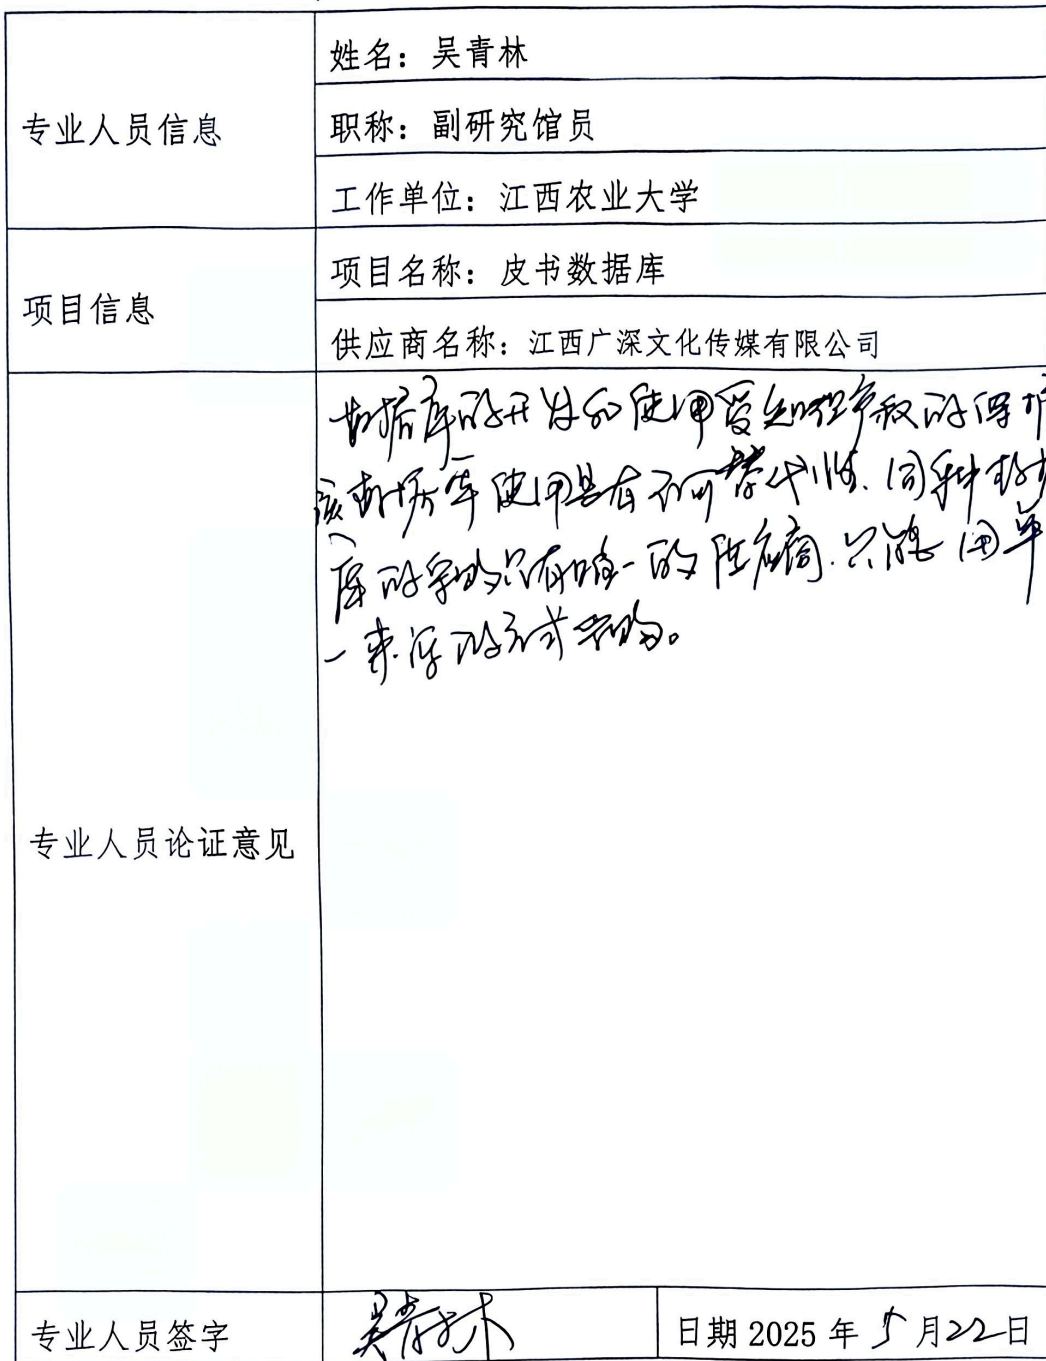 专业人员信息
姓名：吴青林
职称：副研究馆员
工作单位：江西农业大学
项目信息
项目名称：皮书数据库
供应商名称：江西广深文化传媒有限公司
专业人员论证意见
数据库的开发和使用受知识产权的保护
该数据库使用具有不可替代性.同种数据
库的采购只有唯一的供应商.只能用单
一来源的方式采购。
专业人员签字
吴青林
日期 2025 年 5 月 22 日